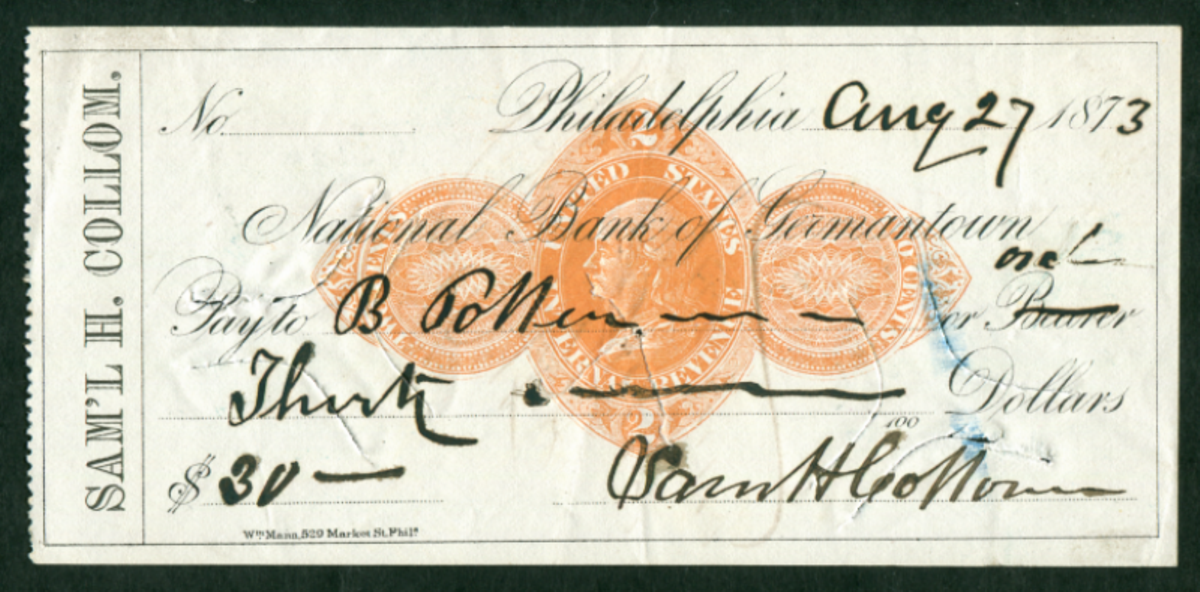 SAM'L H. COLLOM.
No. Philadelphia Aug 27 1873
2
UNITED STATES
National Bank of Germantown
INTERNAL REVENUE
Pay to B or Bearer
Thirty Dollars
100
2
$ 30
Sam H Collom
Wm Mann, 529 Market St. Phila